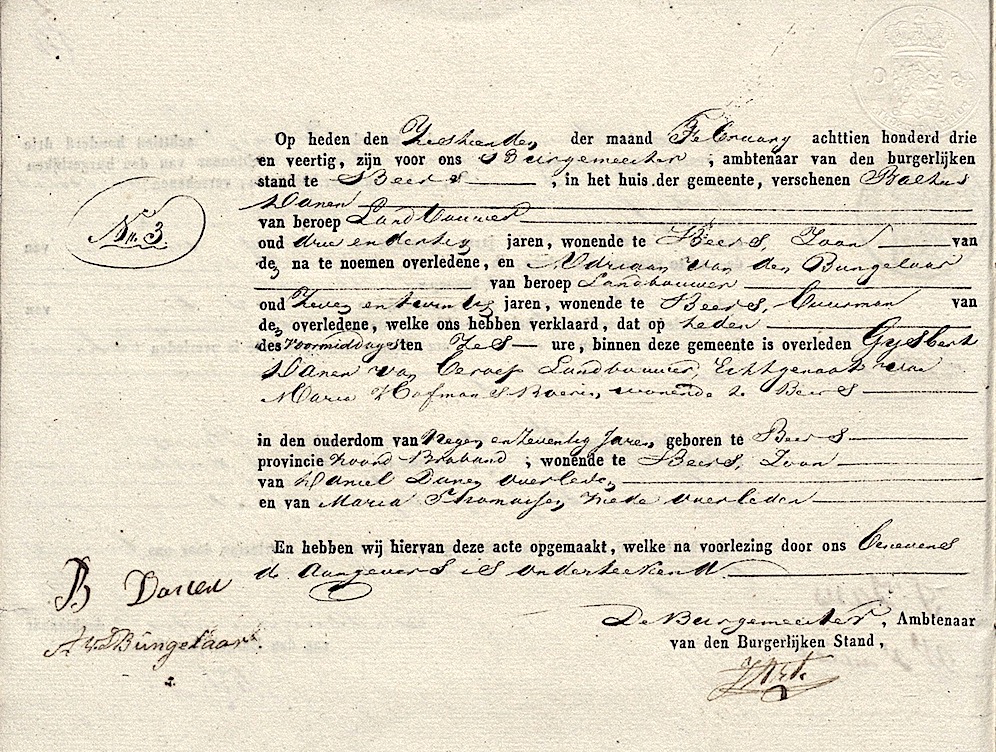 Op heden den Zestienden der maand February achttien honderd drie
en veertig, zijn voor ons Burgemeester, ambtenaar van den burgerlijken
stand te Beers, in het huis der gemeente, verschenen Baltus
Danen
van beroep Landbouwer
No. 3.
oud drie en dertig jaren, wonende te Beers, Zoon van
de na te noemen overledene, en Adriaan van den Bungelaar
van beroep Landbouwer
oud Zeven en twintig jaren, wonende te Beers, Buurman van
de overledene, welke ons hebben verklaard, dat op heden
des voormiddags ten Zes ure, binnen deze gemeente is overleden Gysbert
Danen van beroep Landbouwer, Echtgenoot van
Maria Hofmans wonende te Beers
in den ouderdom van Negen en Zeventig Jaren geboren te Beers
provincie Noord Braband, wonende te Beers, Zoon
van Daniel Danen overleden
en van Maria Thomassen mede overleden
En hebben wij hiervan deze acte opgemaakt, welke na voorlezing door ons benevens
de Aangevers is onderteekend.
B Danen
A v d Bungelaar.
De Burgemeester, Ambtenaar
van den Burgerlijken Stand,